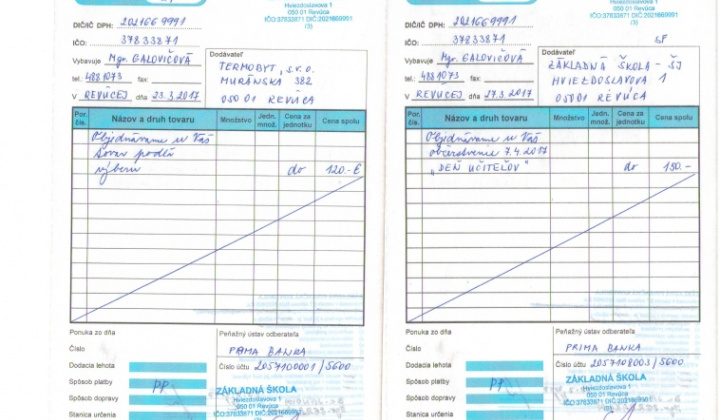 Hviezdoslavova 1
050 01 Revúca
IČO:37833871 DIČ:2021669991
(3)
DIČ/IČ DPH: 2021669991
IČO: 37833871
Vybavuje Mgr. GALOVIČOVÁ
tel.: 4881073 fax:
V REVÚCEJ dňa 23.3.2017
Dodávateľ
TERMOBYT, s.r.o.
MURÁNSKA 382
050 01 REVÚCA
Por. čís. Názov a druh tovaru Množstvo Jedn. množ. Cena za jednotku Cena spolu
Objednávame u Vás
tovar podľa
výberu do 120.-€
Ponuka zo dňa
Číslo
Dodacia lehota
Spôsob platby PP
Spôsob dopravy
Stanica určenia
Peňažný ústav odberateľa
PRIMA BANKA
Číslo účtu 2057100001/5600
ZÁKLADNÁ ŠKOLA
Hviezdoslavova 1
050 01 Revúca
IČO:37833871 DIČ:2021669991
Hviezdoslavova 1
050 01 Revúca
IČO:37833871 DIČ:2021669991
(3)
DIČ/IČ DPH: 2021669991
IČO: 37833871
SF
Vybavuje Mgr. GALOVIČOVÁ
tel.: 4881073 fax:
V REVÚCEJ dňa 27.3.2017
Dodávateľ
ZÁKLADNÁ ŠKOLA - ŠJ
HVIEZDOSLAVOVA 1
050 01 REVÚCA
Por. čís. Názov a druh tovaru Množstvo Jedn. množ. Cena za jednotku Cena spolu
Objednávame u Vás
občerstvenie 7.4.2017
"DEŇ UČITEĽOV" do 150.-
Ponuka zo dňa
Číslo
Dodacia lehota
Spôsob platby
Spôsob dopravy
Stanica určenia
Peňažný ústav odberateľa
PRIMA BANKA
Číslo účtu 2057108003/5600
ZÁKLADNÁ ŠKOLA
Hviezdoslavova 1
050 01 Revúca
IČO:37833871 DIČ:2021669991